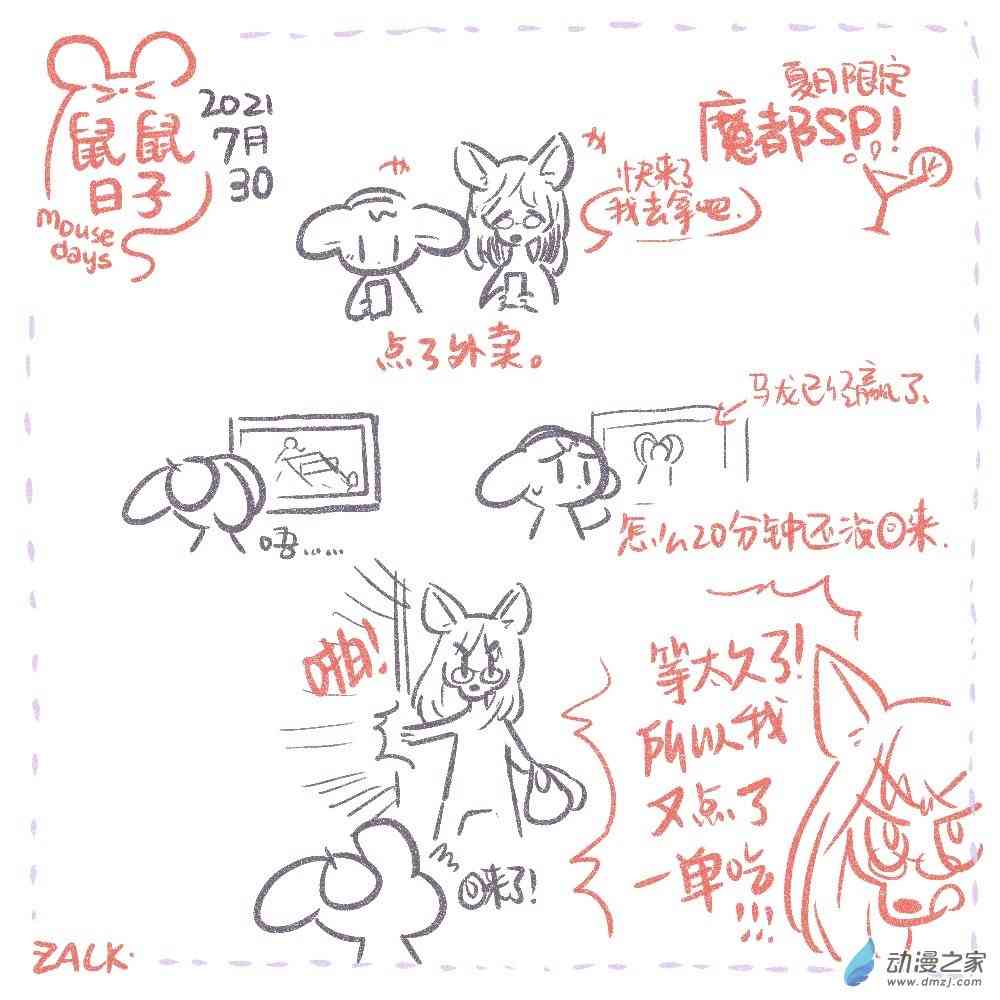 鼠鼠
日子
mouse
days
2021
7月
30
夏日限定
魔都SP!
快来了
我去拿吧.
点了外卖。
唔……
马龙已经赢了.
怎么20分钟还没回来.
啪!
回来了!
等太久了!
所以我
又点了
一单吃
!!!
ZALK.
动漫之家
www.dmzj.com